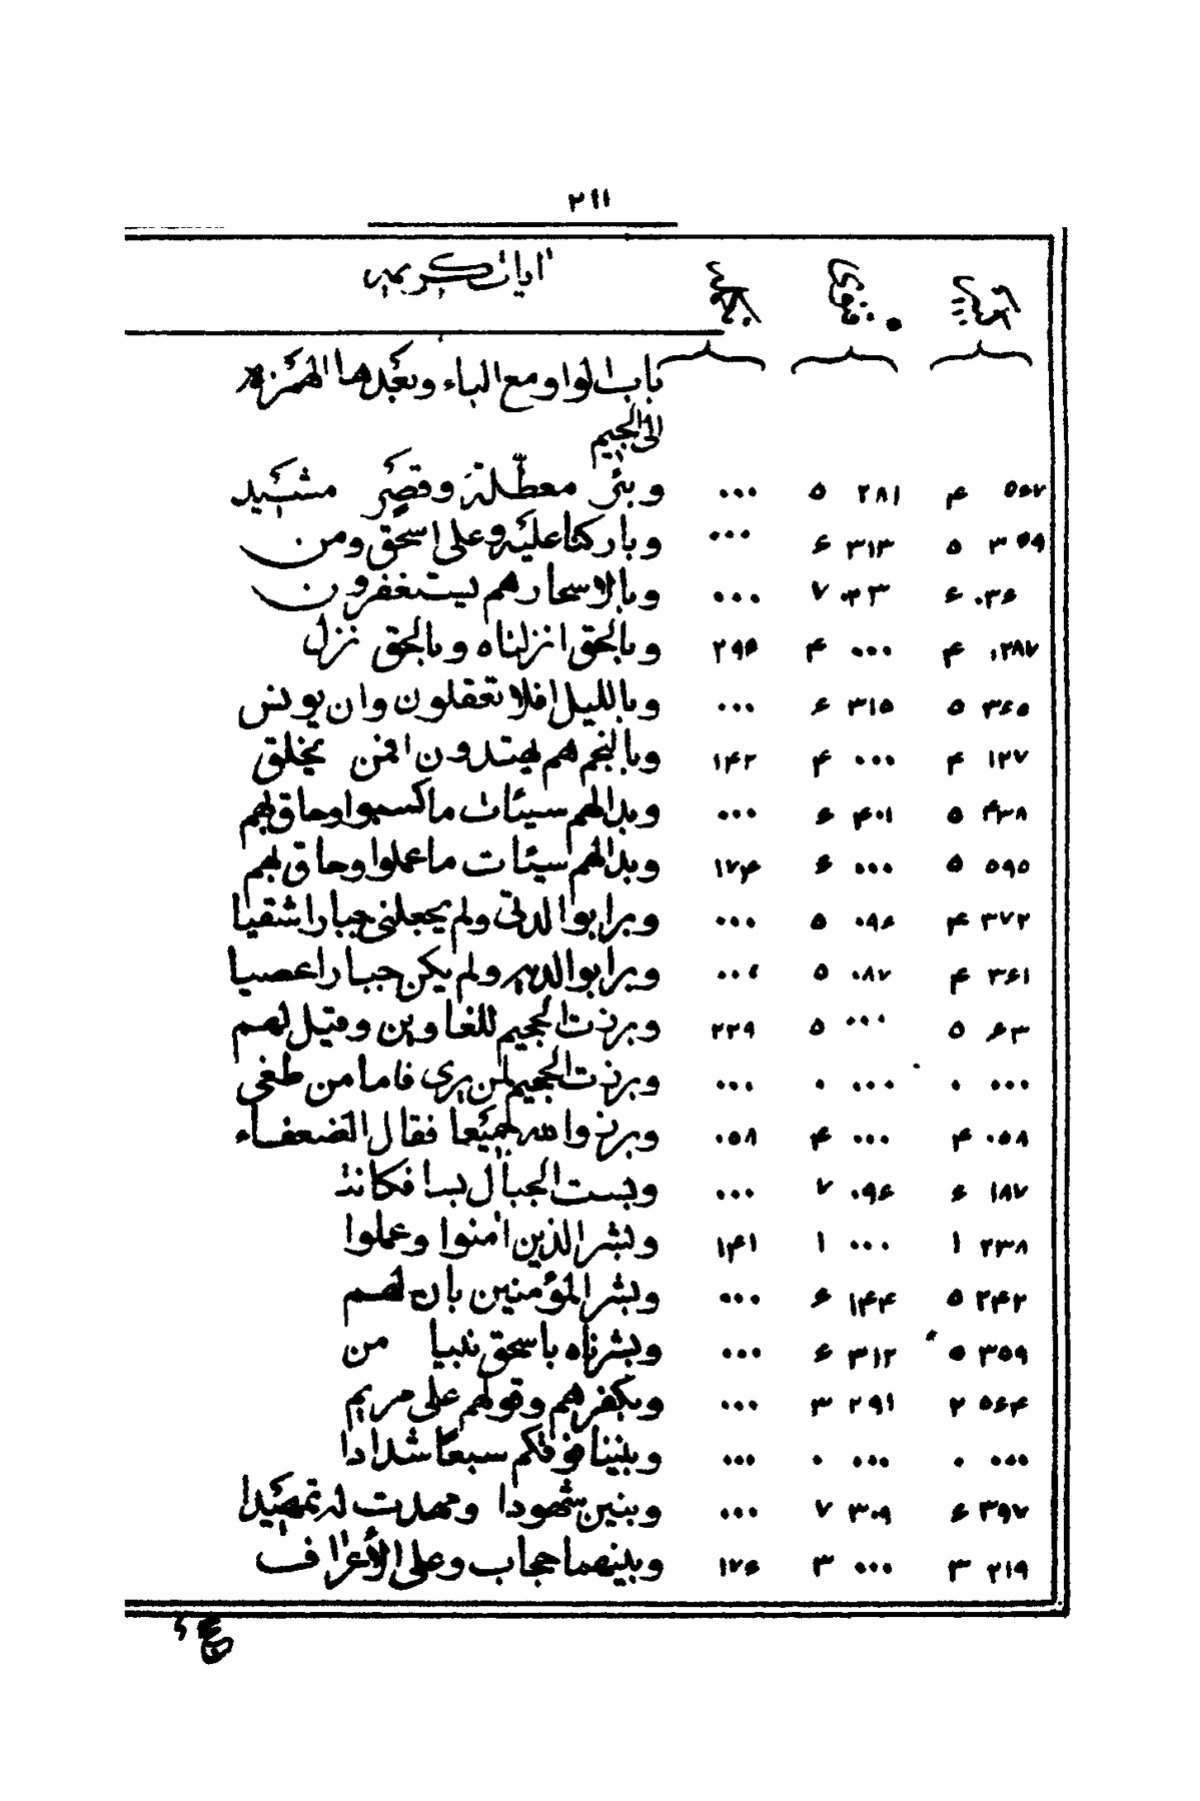 ٢١١
آيات كريمه
باب الواو مع الباء وبعدها الهمزة
الى الجيم
٥٦٧ ۴ ٢٨١ ٥ ٠٠٠ وبئر معطلة وقصر مشيد
٣٥٩ ٥ ٣١٣ ۶ ٠٠٠ وباركنا عليه وعلى اسحق ومن
٠٣۶ ۶ ٠٢٣ ٧ ٠٠٠ وبالاسحار هم يستغفرون
٢٨٧ ۴ ٠٠٠ ۴ ٢٩۶ وبالحق انزلناه وبالحق نزل
٣۶٥ ٥ ٣١٥ ۶ ٠٠٠ وبالليل افلا تعقلون وان يونس
١٢٧ ۴ ٠٠٠ ۴ ١۴٢ وبالنجم هم يهتدون افمن يخلق
۴٣٨ ٥ ۴٠١ ۶ ٠٠٠ وبدا لهم سيئات ما كسبوا وحاق بهم
٥٩٥ ٥ ٠٠٠ ۶ ١٧۴ وبدا لهم سيئات ما عملوا وحاق بهم
٣٧٢ ۴ ٠٩۶ ٥ ٠٠٠ وبرا بوالدتى ولم يجعلنى جبارا شقيا
٣۶١ ۴ ٠٨٧ ٥ ٠٠٠ وبرا بوالديه ولم يكن جبارا عصيا
٠۶٣ ٥ ٠٠٠ ٥ ٢٢٩ وبرزت الجحيم للغاوين وقيل لهم
٠٠٠ ٠ ٠٠٠ ٠ ٠٠٠ وبرزت الجحيم لمن يرى فاما من طغى
٠٥٨ ۴ ٠٠٠ ۴ ٠٥٨ وبرزوا لله جميعا فقال الضعفاء
١٨٧ ۶ ٠٩۶ ٧ ٠٠٠ وبست الجبال بسا فكانت
٢٣٨ ١ ٠٠٠ ١ ١۴١ وبشر الذين آمنوا وعملوا
٢۴٢ ٥ ١۴۴ ۶ ٠٠٠ وبشر المؤمنين بان لهم
٣٥٩ ٥ ٣١٢ ۶ ٠٠٠ وبشرناه باسحق نبيا من
٥۶۴ ٢ ٢٩١ ٣ ٠٠٠ وبكفرهم وقولهم على مريم
٠٠٠ ٠ ٠٠٠ ٠ ٠٠٠ وبنينا فوقكم سبعا شدادا
٣٩٧ ۶ ٣٠٩ ٧ ٠٠٠ وبنين شهودا ومهدت له تمهيدا
٢١٩ ٣ ٠٠٠ ٣ ١٧۶ وبينهما حجاب وعلى الأعراف